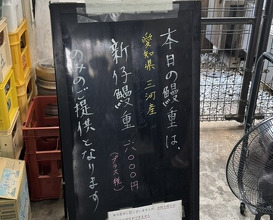 本日の鰻重は、
愛知県 三河産
新仔鰻重 六〇〇〇円
(プラス税)
のみのご提供となります